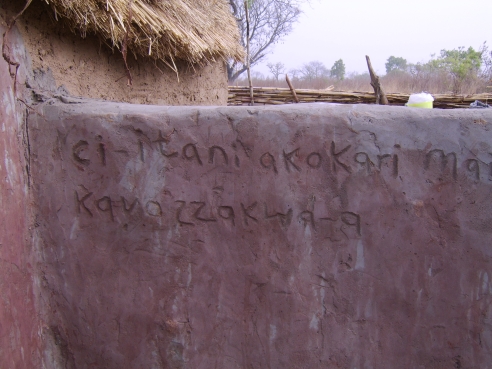 ci-itani akokari ma
kavazzakwa-a